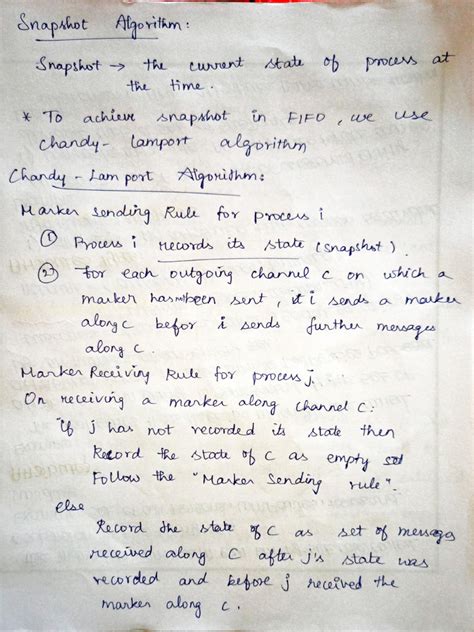 Snapshot Algorithm:
Snapshot → the current state of process at
the time.
* To achieve snapshot in FIFO, we use
Chandy-lamport algorithm
Chandy-Lamport Algorithm:
Marker Sending Rule for process i
① Process i records its state (snapshot).
② For each outgoing channel c on which a
marker has not been sent, i sends a marker
along c befor i sends further messages
along c.
Marker Receiving Rule for process j.
On receiving a marker along channel C.
"If j has not recorded its state then
Record the state of C as empty set
Follow the "Marker Sending rule".
else
Record the state of C as set of messages
received along C after j's state was
recorded and before j received the
marker along c.